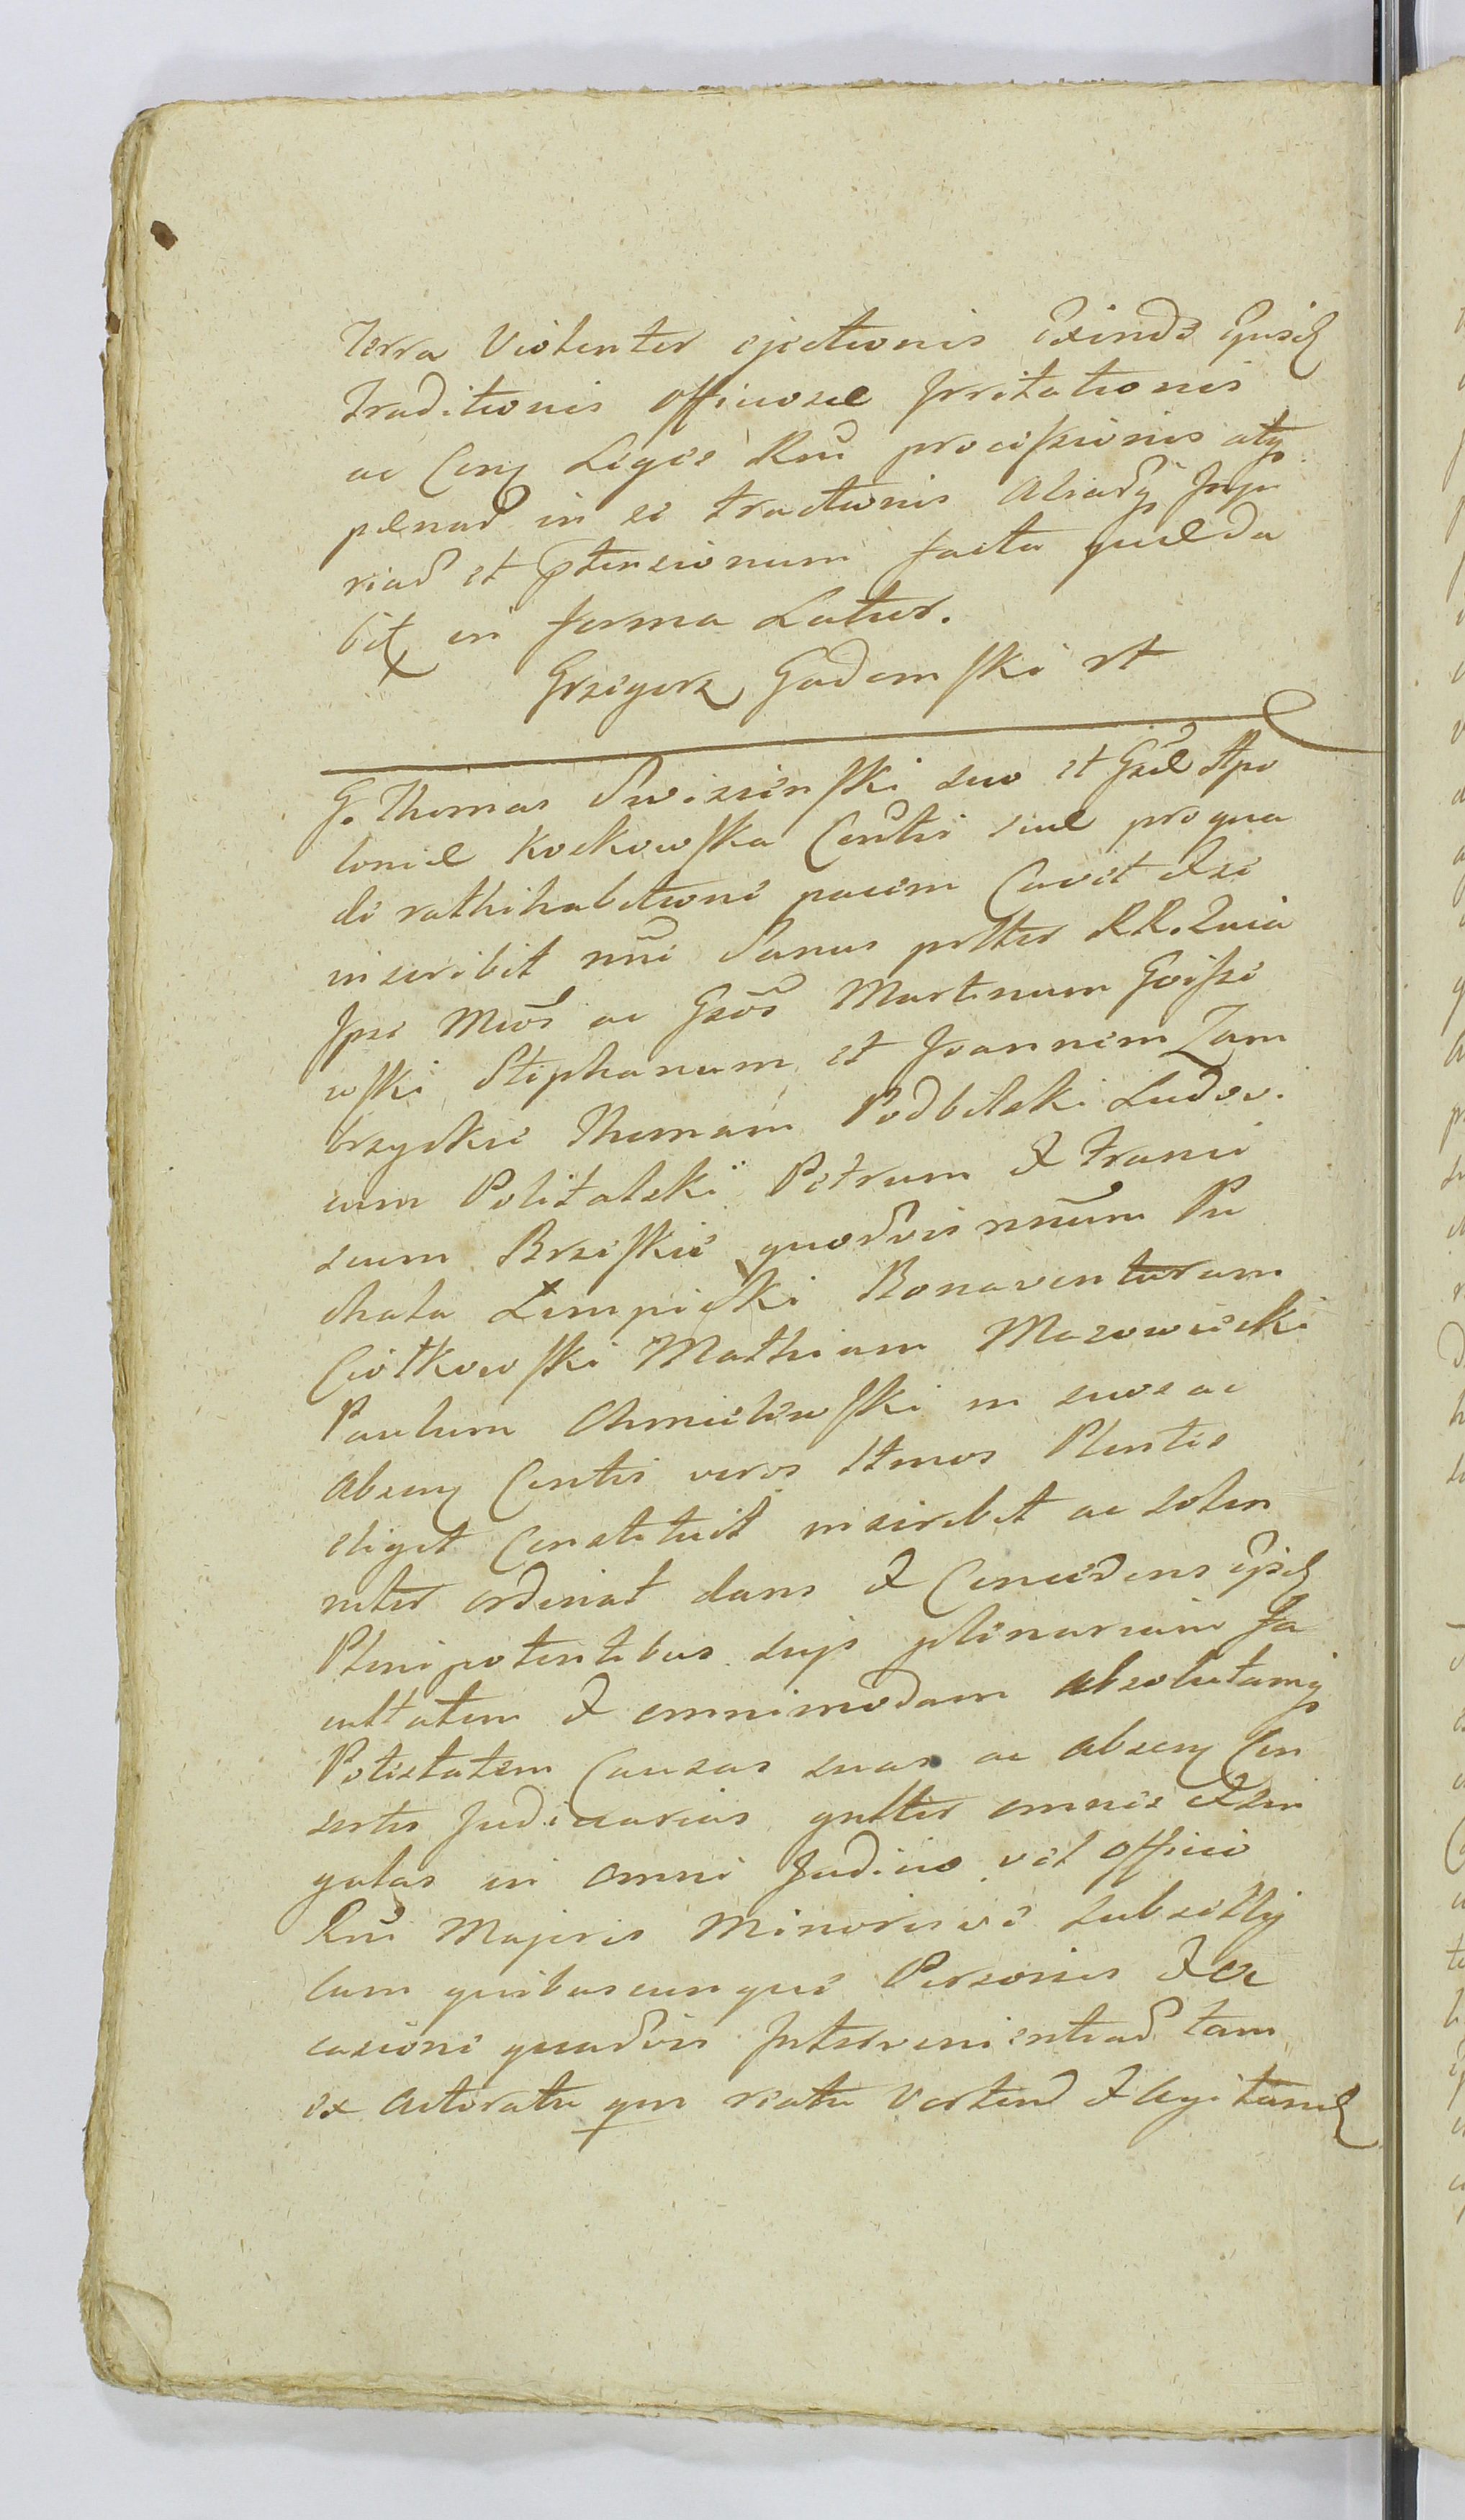 terra Violenter ejectionis Exinde Ejusd
traditionis officiosae Irritationis
ac Cen Legis Rni processionis atq
penar in se tractionis Aliarq Inju
riar et Ptensionum facta quaeda
bit in forma Latior.
Grzegorz Gadomski rt
G. Thomas Swiesienski suo et Gsae Apo
loniae Koskowska Contis suae pro qua
de rathihabitione pacem Cavit Ese
inscribit nni Sanus pntter RR. Quia
Ipse Mcos ac Gsos Martinum
wski Stephanum et Joannem Zam
brzyckie Thomam Podbilski Ludov.
cum Politalski Petrum & Franci
scum Brzeskie quorvis nnum Pu
chala Lempicki Bonaventuram
Ciołkowski Mathiam Mazowiecki
Paulum Chmielewski in suos ac
absen Contis veros Ltmos Plentes
eligit Constituit inscribit ac solen
niter ordinat dans & Concedens Ejsd
Plenipotentibus suis plenariam Fa
cultatem & omnimodam absolutamq
Potestatem Causas suas ac absen Con
sortis Judiciarias gnlter omnes & Sin
gulas in omni Judicio vel officio
Rni Majoris Minorisve subsellij
Cum quibuscunque Personis & ex
casione quarvis Intervenientiar tam
ex Actoratu qm reatu Vertend & Agitand